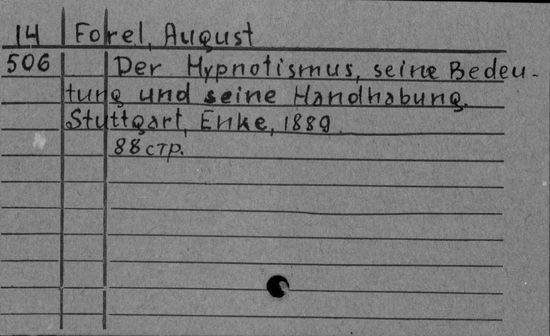 14 Forel, August
506 Der Hypnotismus, seine Bedeu-
tung und seine Handhabung.
Stuttgart, Enke, 1889.
88 стр.